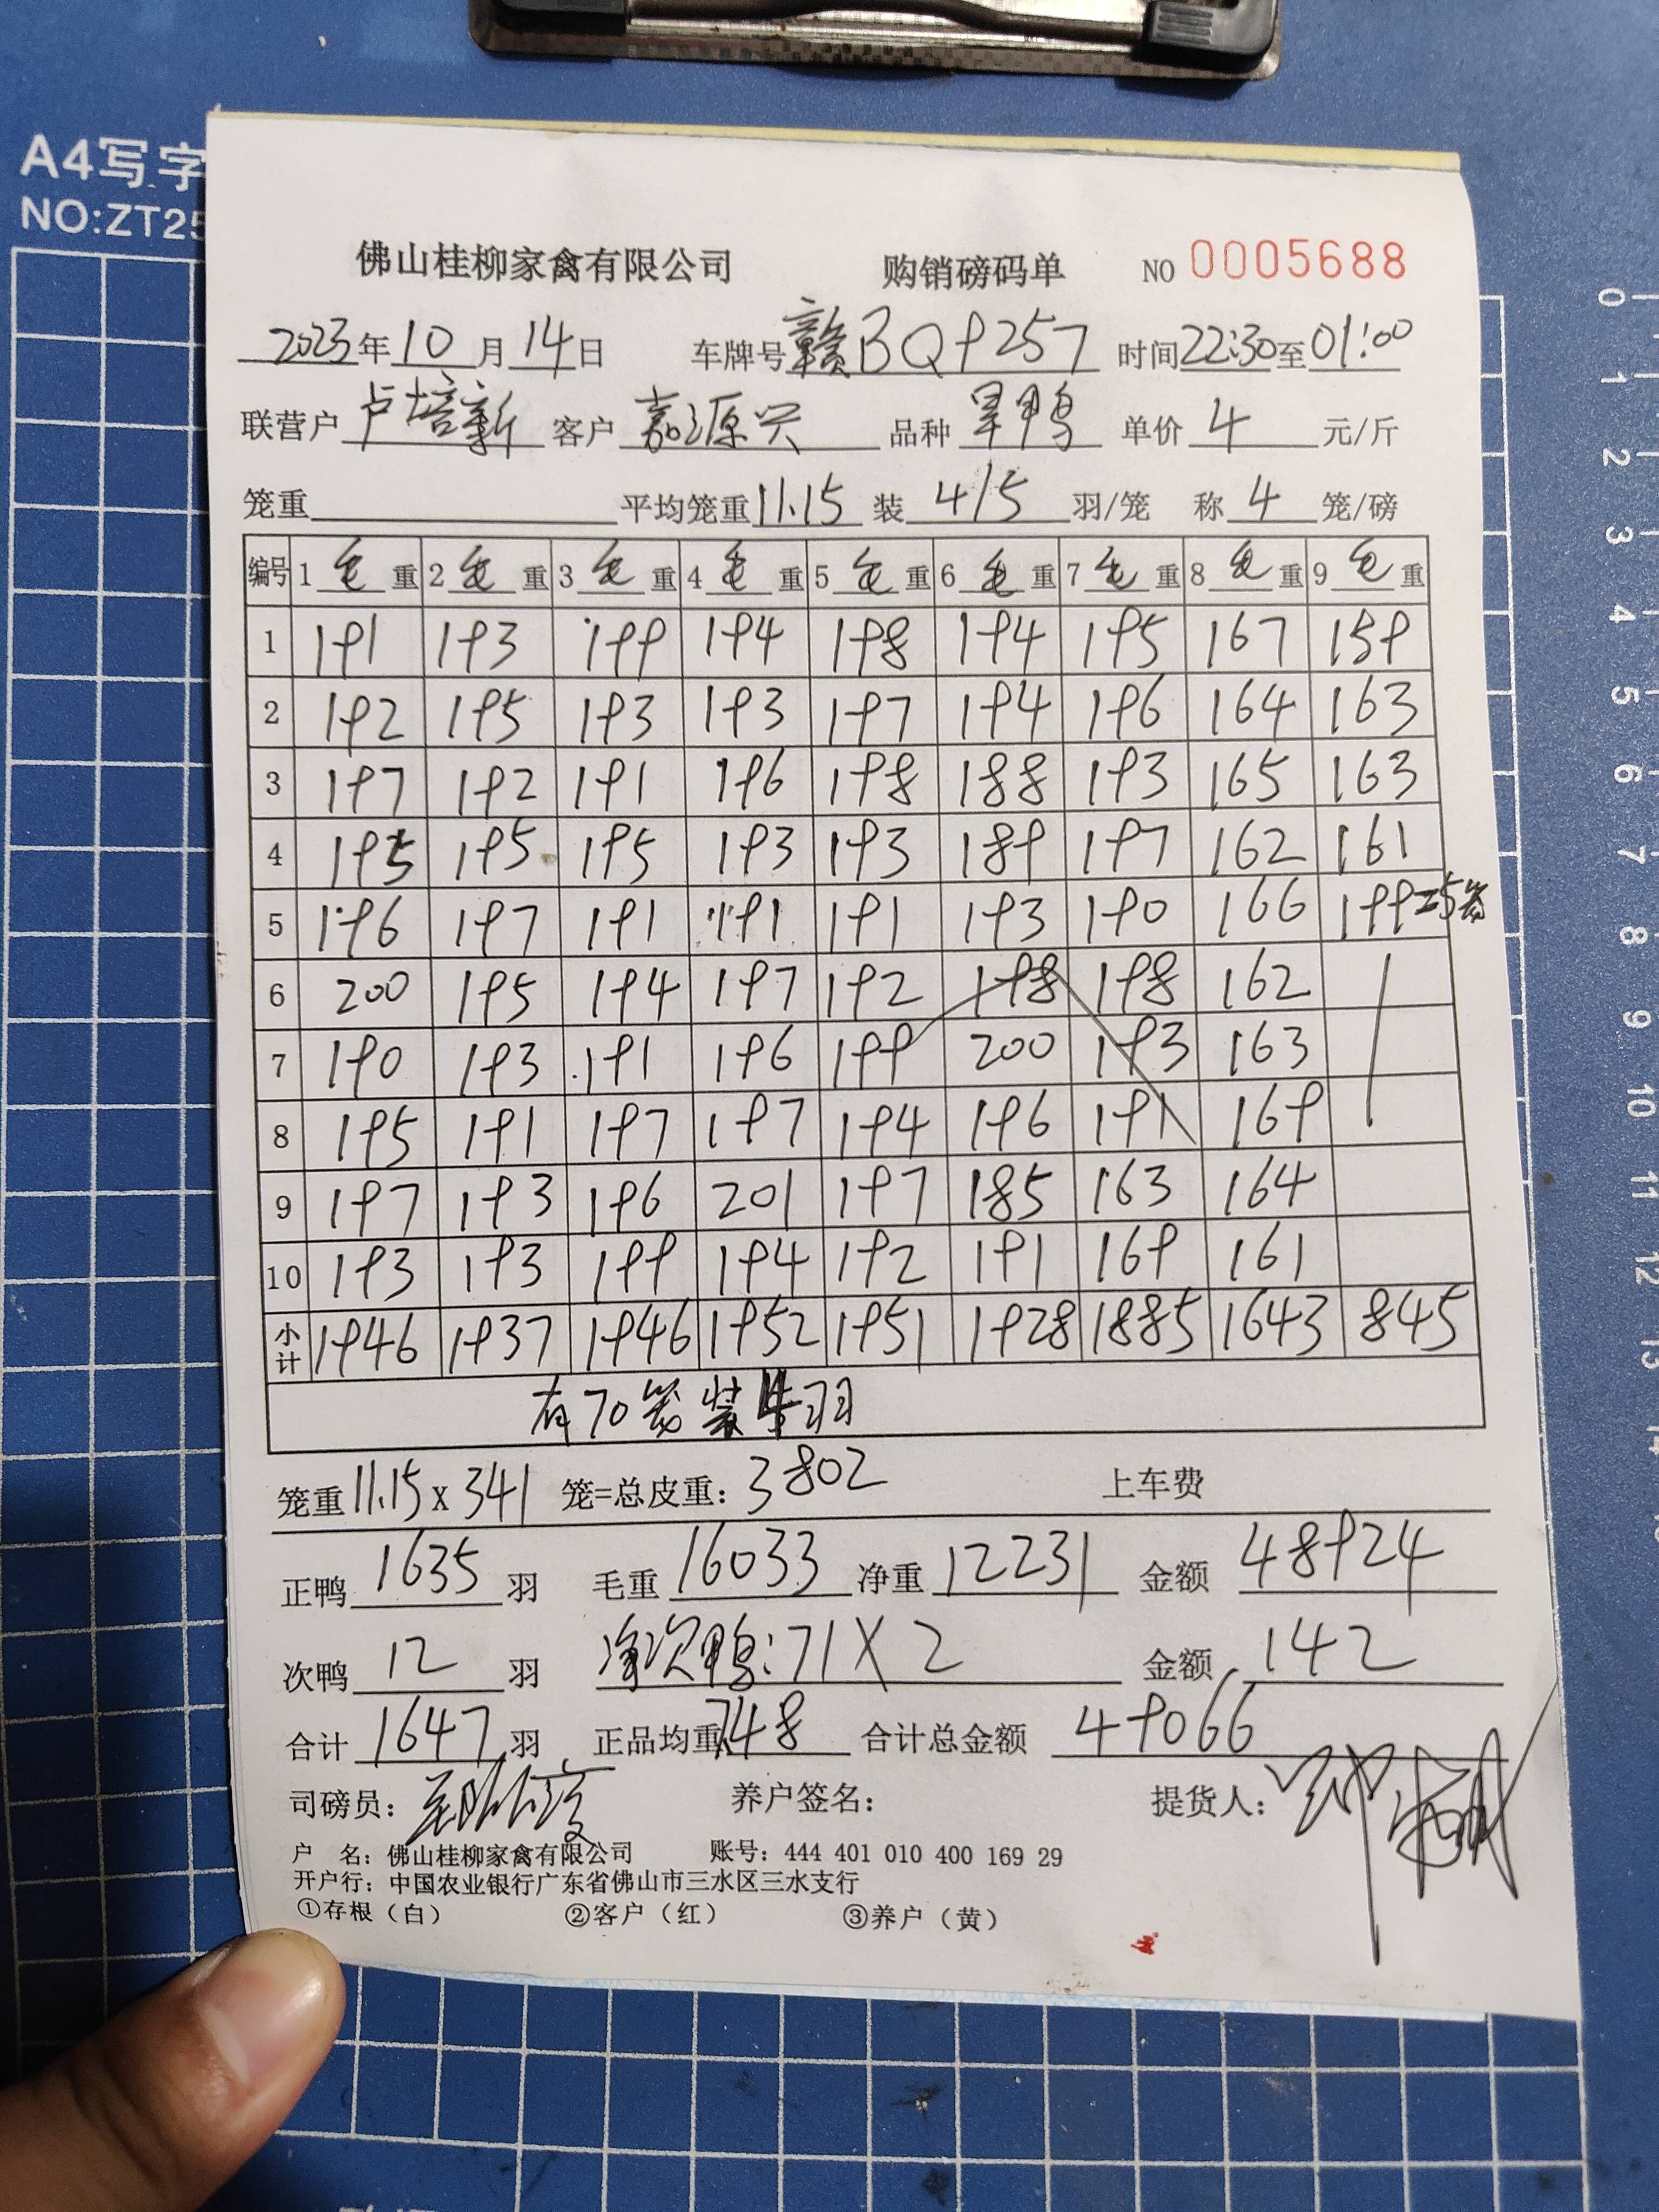 A4写字
NO:ZT25
佛山桂柳家禽有限公司 购销磅码单 NO 0005688
2023年10月14日 车牌号赣BQ9257 时间22:30至01:00
联营户卢培新 客户嘉源兴 品种旱鸭 单价4元/斤
笼重 平均笼重11.15 装4/5羽/笼 称4笼/磅
编号 1毛重 2毛重 3毛重 4毛重 5毛重 6毛重 7毛重 8毛重 9毛重
1 191 193 199 194 198 194 195 167 159
2 192 195 193 193 197 194 196 164 163
3 197 192 191 196 198 188 193 165 163
4 195 195 195 193 193 189 197 162 161
5 196 197 191 191 191 193 190 166 199=5笼
6 200 195 194 197 192 198 198 162
7 190 193 191 196 199 200 193 163
8 195 191 197 197 194 196 191 169
9 197 193 196 201 197 185 163 164
10 193 193 199 194 192 191 169 161
小计 1946 1937 1946 1952 1951 1928 1885 1643 845
有70笼装4羽
笼重11.15x341笼=总皮重:3802 上车费
正鸭1635羽 毛重16033 净重12231 金额48924
次鸭12羽 净次鸭:71X2 金额142
合计1647羽 正品均重7.48 合计总金额49066
司磅员: 养户签名: 提货人:
户 名:佛山桂柳家禽有限公司 账号:444 401 010 400 169 29
开户行:中国农业银行广东省佛山市三水区三水支行
①存根(白) ②客户(红) ③养户(黄)
0
1
2
3
4
5
6
7
8
9
10
11
12
13
14